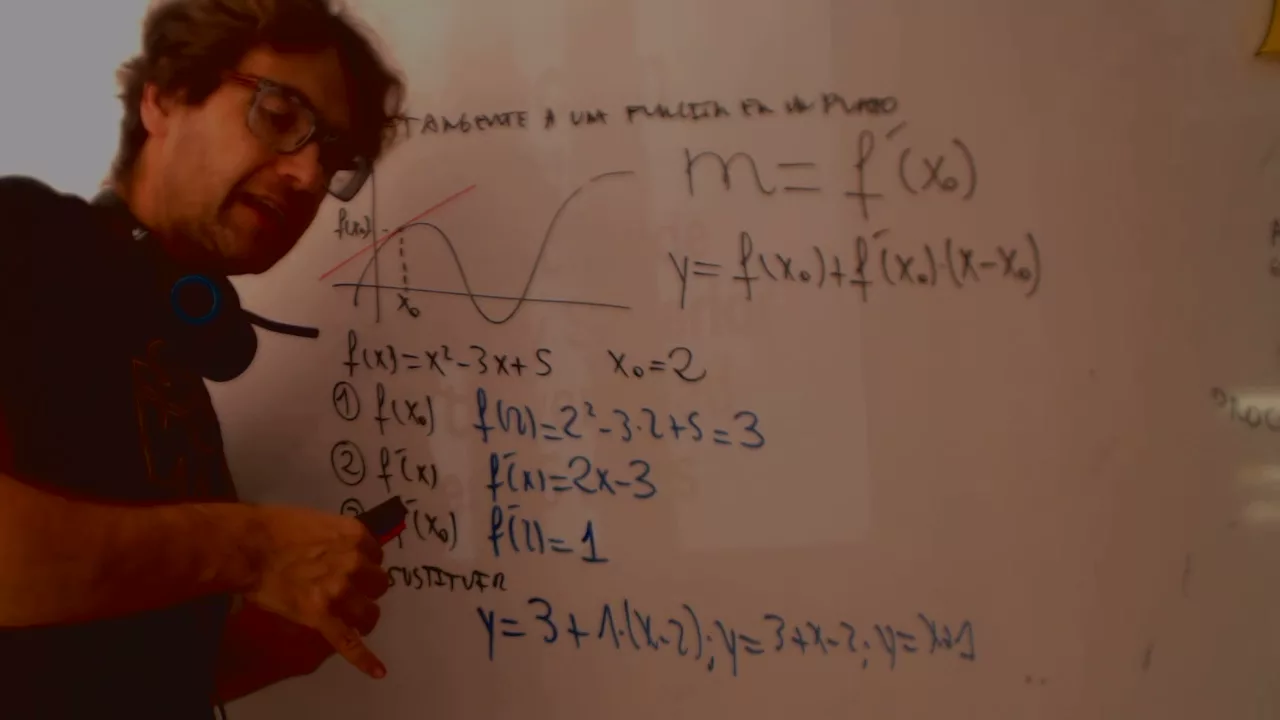 TANGENTE A UNA FUNCIÓN EN UN PUNTO
m = f´(x₀)
y = f(x₀) + f´(x₀)·(x-x₀)
f(x₀)
x₀
f(x) = x² - 3x + 5 x₀ = 2
① f(x₀) f(2) = 2² - 3·2 + 5 = 3
② f´(x) f´(x) = 2x - 3
´(x₀) f´(2) = 1
SUSTITUIR
y = 3 + 1·(x-2); y = 3 + x - 2; y = x + 1